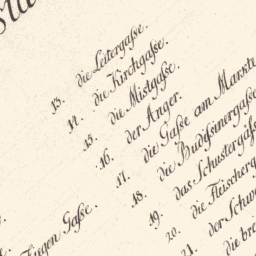 13. die Leitergaße.
14. die Kirchgaße.
15. die Mistgaße.
16. der Anger.
17. die Gaße am Markte
18. die Budißinergaße
19. das Schustergäß
20. die Fleischerg
21. der Schw
die bre
Gaße.